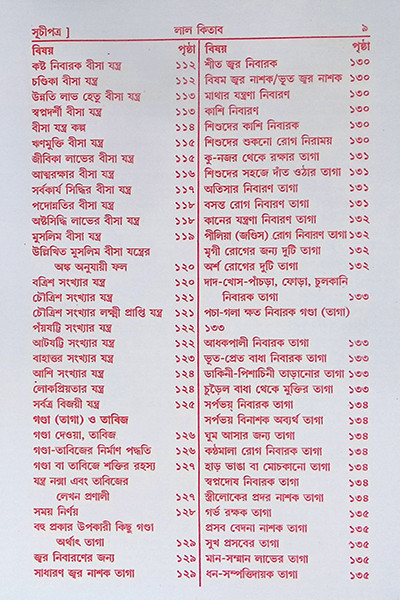 সূচীপত্র ]
লাল কিতাব
৯
বিষয় পৃষ্ঠা
কষ্ট নিবারক বীসা যন্ত্র ১১২
চণ্ডিকা বীসা যন্ত্র ১১২
উন্নতি লাভ হেতু বীসা যন্ত্র ১১৩
স্বপ্নদর্শী বীসা যন্ত্র ১১৩
বীসা যন্ত্র কল্প ১১৪
ঋণমুক্তি বীসা যন্ত্র ১১৫
জীবিকা লাভের বীসা যন্ত্র ১১৫
আত্মরক্ষার বীসা যন্ত্র ১১৬
সর্বকার্য সিদ্ধির বীসা যন্ত্র ১১৭
পদোন্নতির বীসা যন্ত্র ১১৮
অষ্টসিদ্ধি লাভের বীসা যন্ত্র ১১৮
মুসলিম বীসা যন্ত্র ১১৯
উল্লিখিত মুসলিম বীসা যন্ত্রের
অঙ্ক অনুযায়ী ফল ১২০
বত্রিশ সংখ্যার যন্ত্র ১২০
চৌত্রিশ সংখ্যার যন্ত্র ১২১
চৌত্রিশ সংখ্যার লক্ষ্মী প্রাপ্তি যন্ত্র ১২১
পঁয়ষট্টি সংখ্যার যন্ত্র ১২২
আটষট্টি সংখ্যার যন্ত্র ১২২
বাহাত্তর সংখ্যার যন্ত্র ১২৩
আশি সংখ্যার যন্ত্র ১২৪
লোকপ্রিয়তার যন্ত্র ১২৪
সর্বত্র বিজয়ী যন্ত্র ১২৫
গণ্ডা (তাগা) ও তাবিজ
গণ্ডা দেওয়া, তাবিজ ১২৬
গণ্ডা-তাবিজের নির্মাণ পদ্ধতি ১২৬
গণ্ডা বা তাবিজে শক্তির রহস্য ১২৭
যন্ত্র নক্সা এবং তাবিজের
লেখন প্রণালী ১২৭
সময় নির্ণয় ১২৮
বহু প্রকার উপকারী কিছু গণ্ডা
অর্থাৎ তাগা ১২৯
জ্বর নিবারণের জন্য ১২৯
সাধারণ জ্বর নাশক তাগা ১২৯
বিষয় পৃষ্ঠা
শীত জ্বর নিবারক ১৩০
বিষম জ্বর নাশক/ভূত জ্বর নাশক ১৩০
মাথার যন্ত্রণা নিবারণ ১৩০
কাশি নিবারণ ১৩০
শিশুদের কাশি নিবারক ১৩০
শিশুদের শুকনো রোগ নিরাময় ১৩০
কু-নজর থেকে রক্ষার তাগা ১৩১
শিশুদের সহজে দাঁত ওঠার তাগা ১৩১
অতিসার নিবারণ তাগা ১৩১
বসন্ত রোগ নিবারণ তাগা ১৩১
কানের যন্ত্রণা নিবারণ তাগা ১৩২
পীলিয়া (জণ্ডিস) রোগ নিবারণ তাগা ১৩২
মৃগী রোগের জন্য দুটি তাগা ১৩২
অর্শ রোগের দুটি তাগা ১৩২
দাদ-খোস-পাঁচড়া, ফোড়া, চুলকানি
নিবারক তাগা ১৩৩
পচা-গলা ক্ষত নিবারক গণ্ডা (তাগা)
১৩৩
আধকপালী নিবারক তাগা ১৩৩
ভূত-প্রেত বাধা নিবারক তাগা ১৩৩
ডাকিনী-পিশাচিনী তাড়ানোর তাগা ১৩৩
চুড়ৈল বাধা থেকে মুক্তির তাগা ১৩৩
সর্পভয় নিবারক তাগা ১৩৪
সর্পভয় বিনাশক অব্যর্থ তাগা ১৩৪
ঘুম আসার জন্য তাগা ১৩৪
কণ্ঠমালা রোগ নিবারক তাগা ১৩৪
হাড় ভাঙা বা মোচকানো তাগা ১৩৪
স্বপ্নদোষ নিবারক তাগা ১৩৪
স্ত্রীলোকের প্রদর নাশক তাগা ১৩৪
গর্ভ রক্ষক তাগা ১৩৫
প্রসব বেদনা নাশক তাগা ১৩৫
সুখ প্রসবের তাগা ১৩৫
মান-সম্মান লাভের তাগা ১৩৫
ধন-সম্পত্তিদায়ক তাগা ১৩৫